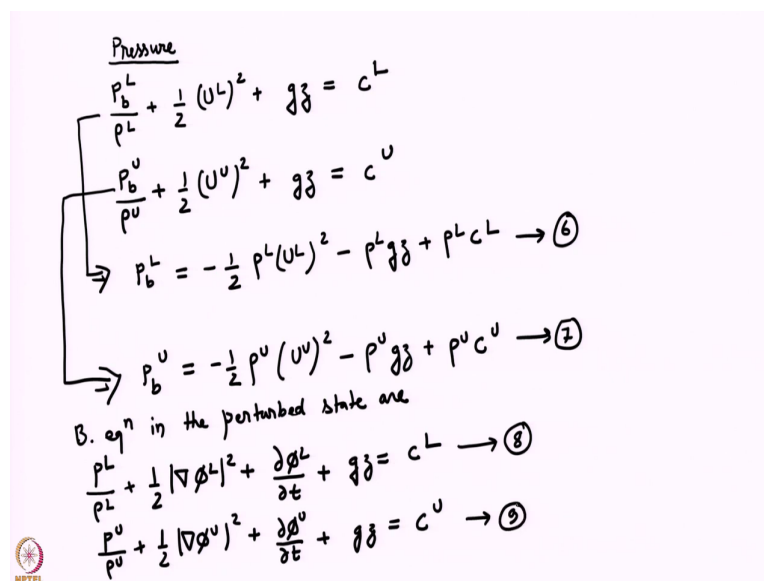 Pressure
P_b^L/ρ^L + 1/2 (U^L)^2 + gz = c^L
P_b^U/ρ^U + 1/2 (U^U)^2 + gz = c^U
⇒ P_b^L = - 1/2 ρ^L(U^L)^2 - ρ^L gz + ρ^L c^L → ⑥
⇒ P_b^U = - 1/2 ρ^U (U^U)^2 - ρ^U gz + ρ^U c^U → ⑦
B. eq^n in the perturbed state are
P^L/ρ^L + 1/2 |∇φ^L|^2 + ∂φ^L/∂t + gz = c^L → ⑧
P^U/ρ^U + 1/2 |∇φ^U|^2 + ∂φ^U/∂t + gz = c^U → ⑨
NPTEL